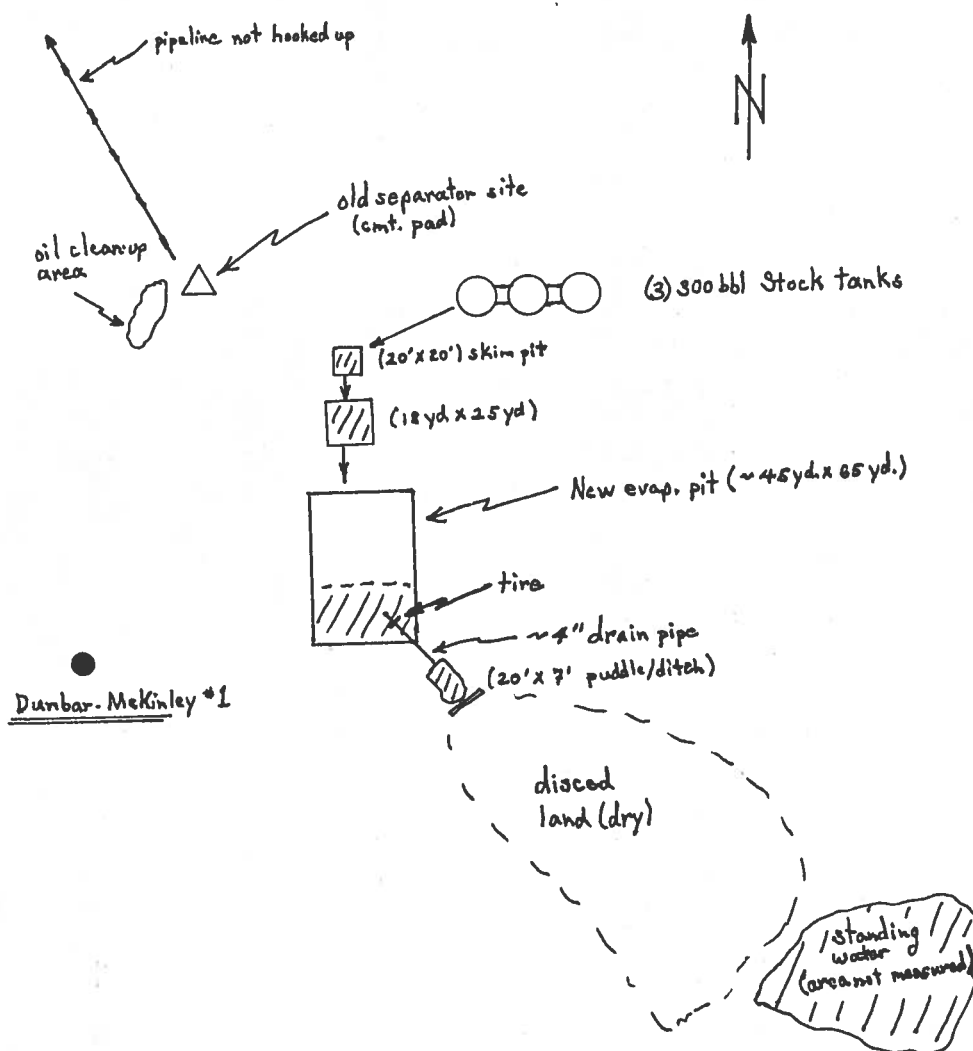 pipeline not hooked up
N
old separator site
(cmt. pad)
oil cleanup
area
(3) 300 bbl Stock tanks
(20' x 20') skim pit
(18 yd. x 25 yd)
New evap. pit (~45 yd. x 65 yd.)
tire
~4" drain pipe
(20' x 7' puddle/ditch)
Dunbar-McKinley #1
disced
land (dry)
standing
water
(area not measured)